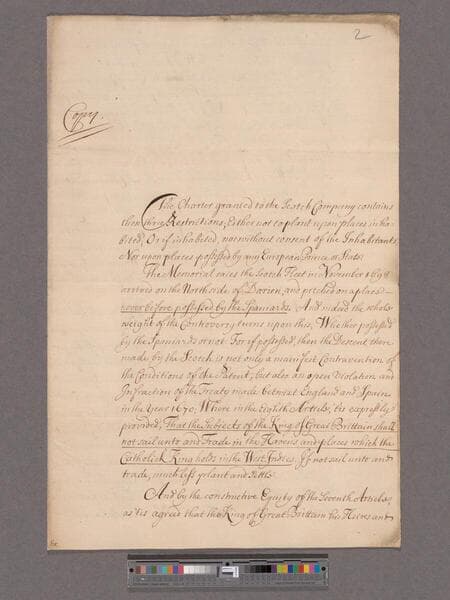 2
Copy.
The Charter granted to the Scotch Company contains
these three Restrictions, Either not to plant upon places inha-
bited; Or if inhabited, not without consent of the Inhabitants,
Nor upon places possessed by any European Prince or State.
The Memorial saies the Scotch Fleet in November 1698
arrived on the North side of Darien, and pitched on a place
never before possessed by the Spaniards. And indeed the whole
weight of the Controversy turns upon this, Whether possessed
by the Spaniards or not. For if possessed, then the Descent there
made by the Scotch, is not only a manifest Contravention of
the Conditions of the Patent, but also an open Violation and
Infraction of the Treaty made betwixt England and Spain
in the Year 1670; Where in the Eighth Article, tis expressly
provided, That the Subjects of the King of Great Brittain shall
not sail unto and Trade in the Havens and places which the
Catholick King holds in the West Indies. If not sail unto and
trade, much less plant and settle.
And by the constructive Equity of the Seventh Article,
as tis agreed that the King of Great Brittain his Heires and